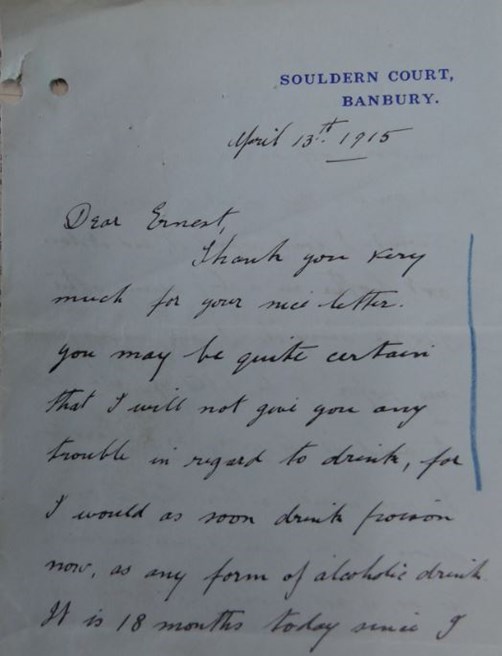 SOULDERN COURT,
BANBURY.
April 13th. 1915
Dear Ernest,
Thank you very
much for your nice letter.
you may be quite certain
that I will not give you any
trouble in regard to drink, for
I would as soon drink poison
now, as any form of alcoholic drink.
It is 18 months today since I